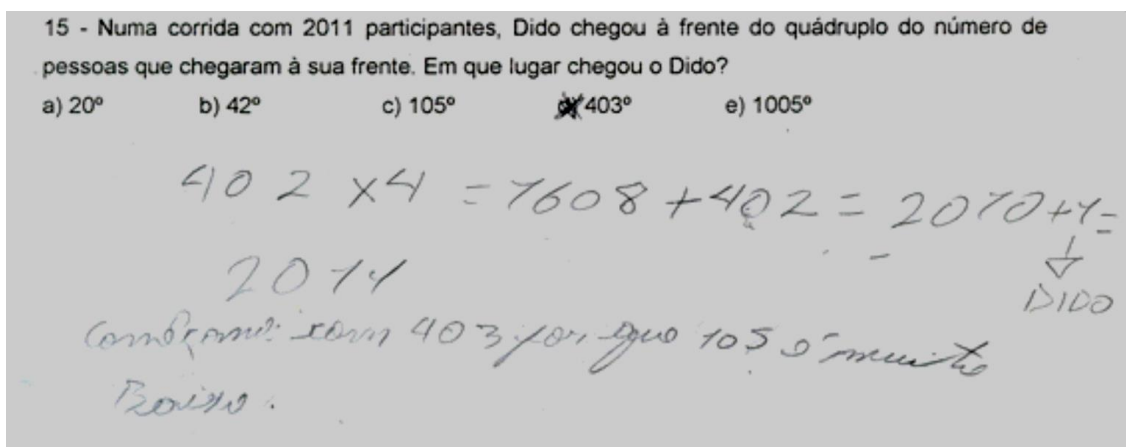 15 - Numa corrida com 2011 participantes, Dido chegou à frente do quádruplo do número de
pessoas que chegaram à sua frente. Em que lugar chegou o Dido?
a) 20º b) 42º c) 105º d) 403º e) 1005º
402 x4 = 1608 + 402 = 2010 +1 =
2011
DIDO
com 403 por que 105 é muito
Baixo.